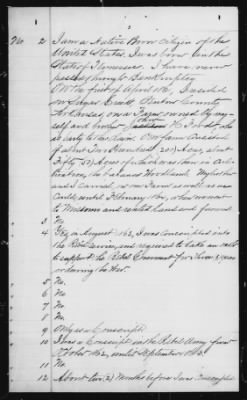 No 2 I am a Native Born Citizen of the
United States, I was born in the
State of Tennessee, I have never
passed through Bankruptcy
On the first of April 1861, I resided
on Sugar Creek, Benton County
Arkansas, on a Farm owned by my
self and brother
of about Two Hundred 200 Acres, about
Fifty (50) Acres of which was then in Culti-
vation, the balance Woodland. My brother
and I carried on our Farm as well as we
could until February 1862, when we went
to Missouri and rented land and farmed
3 No.
4 Yes, in August 1862, I was Conscripted into
the Rebel service, and required to take an oath
to support the Rebel Government for three 3 years
or during the War
5 No.
6 No.
7 No
8 No.
9 Only as a Conscript
10 I was a Conscript in the Rebel Army from
until September 1863.
11 No.
12 About two (2) Months before I was Conscripted